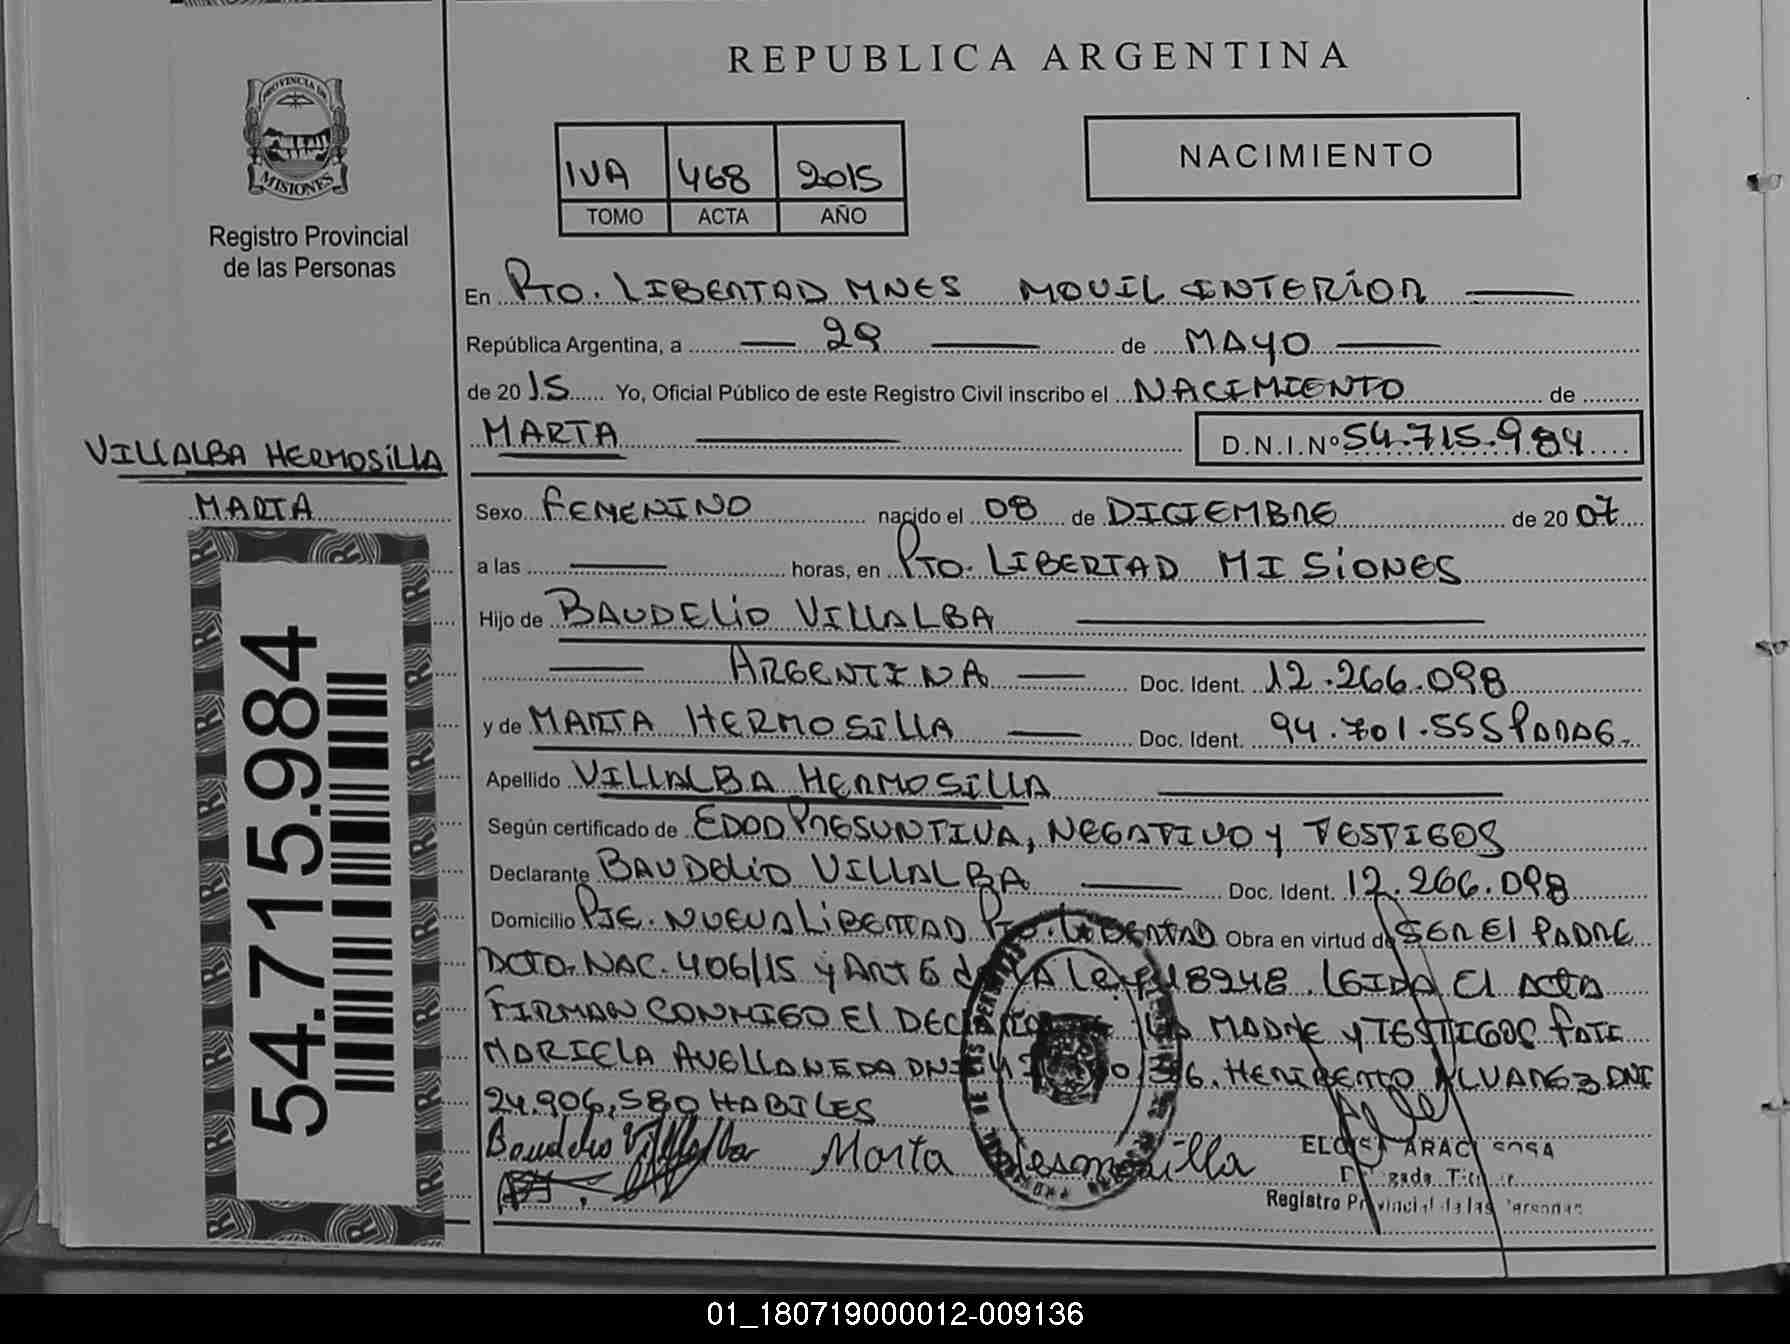 REPUBLICA ARGENTINA
PROVINCIA DE
MISIONES
Registro Provincial
de las Personas
IVA 468 2015
TOMO ACTA AÑO
NACIMIENTO
En Pto. LIBERTAD MNES MOVIL INTERIOR
República Argentina, a 29 de MAYO
de 2015 Yo, Oficial Público de este Registro Civil inscribo el NACIMIENTO de
MARTA D.N.I.Nº 54.715.984
VILLALBA HERMOSILLA
MARTA
Sexo FEMENINO nacido el 08 de DICIEMBRE de 2007
a las horas, en Pto. LIBERTAD MISIONES
Hijo de BAUDELIO VILLALBA
ARGENTINA Doc. Ident. 12.266.098
y de MARTA HERMOSILLA Doc. Ident. 94.701.555 PARAG.
Apellido VILLALBA HERMOSILLA
Según certificado de EDAD PRESUNTIVA, NEGATIVO y TESTIGOS
Declarante BAUDELIO VILLALBA Doc. Ident. 12.266.098
Domicilio PJE. NUEVA LIBERTAD Pto. LIBERTAD Obra en virtud de SER El PADRE
DCTO. NAC. 406/15 y ART 6 de LA Ley 18248. LEIDA El ACTA
FIRMAN CONMIGO El LA MADRE y TESTIGOS
MARIELA AVELLANEDA DNI HERIBERTO ALVAREZ DNI
24.906.580 HABILES
Baudelio Villalba Marta Hermosilla
Registro Provincial de las Personas
54.715.984
01_180719000012-009136